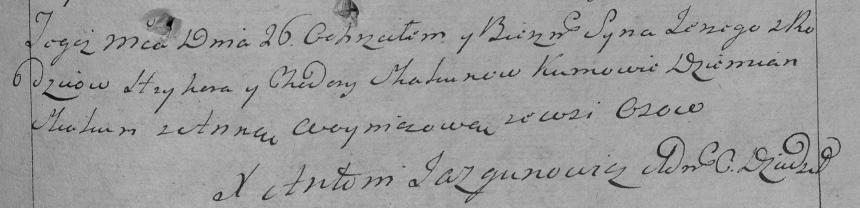 Tegoż Mca Dnia 26 Ochrzciłem y Bierzm: Syna Jerzego z Ro
dziców Hryhora y Chodory Skakunow Kumowie Dziemian
Skakun z Anną Woyniczową ze wsi Osow
X Antoni Jazgunowicz Adm: C. Dziedz